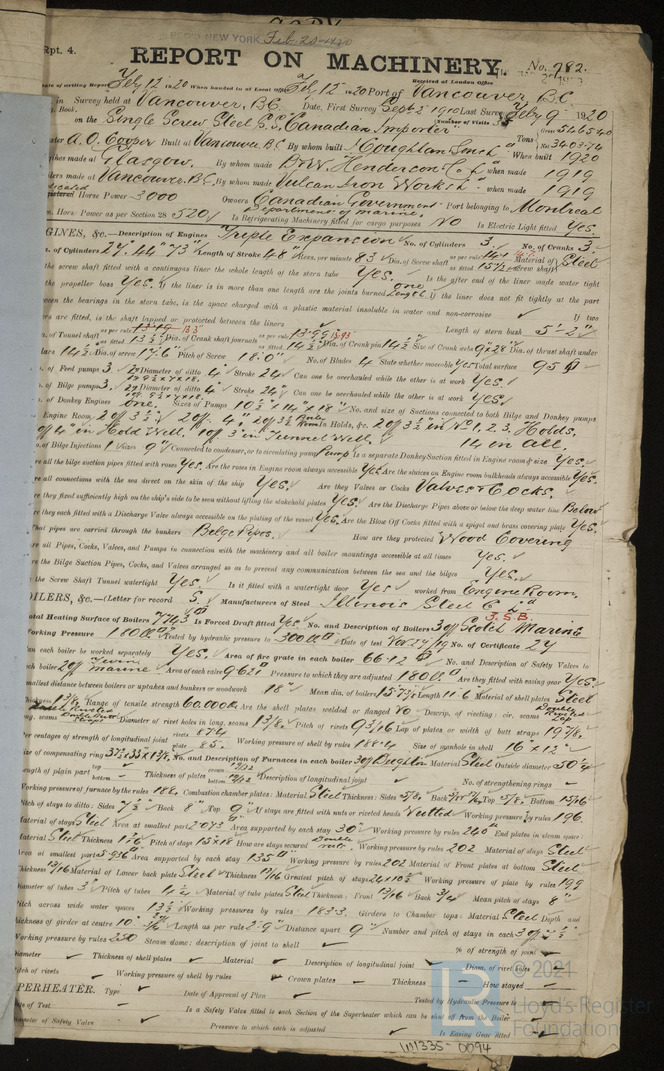 COPY
NEW YORK Feb. 20-1920
Rpt. 4.
REPORT ON MACHINERY. No. 782.
Date of writing Report Feby 12 1920 When handed in at Local Office Feby 12 1920 Port of Vancouver B.C.
Received at London Office
in Survey held at Vancouver, B.C. Date, First Survey Sept 2 1919 Last Survey Feby 9 1920
Book. (Number of Visits
on the Single Screw Steel S.S. "Canadian Importer" Tons Gross 5465.40 Net 3403.74
A. O. Cooper Built at Vancouver, B.C. By whom built J. Coughlan & Sons When built 1920
Engines made at Glasgow. By whom made D. & W. Henderson & Co. Ld when made 1919
made at Vancouver, B.C. By whom made Vulcan Iron Works when made 1919
Horse Power 3000 Owners Canadian Government Department of marine. Port belonging to Montreal
Horse Power as per Section 28 520 Is Refrigerating Machinery fitted for cargo purposes No Is Electric Light fitted Yes.
GINES, &c.—Description of Engines Triple Expansion No. of Cylinders 3. No. of Cranks 3.
of Cylinders 27" 44" 73" Length of Stroke 48" Revs. per minute 83 Dia. of Screw shaft as per rule 14.1 as fitted 15 1/2 Material of screw shaft Steel
the screw shaft fitted with a continuous liner the whole length of the stern tube Yes. Is the after end of the liner made water tight
the propeller boss Yes. If the liner is in more than one length are the joints burned one Length. If the liner does not fit tightly at the part
between the bearings in the stern tube, is the space charged with a plastic material insoluble in water and non-corrosive If two
liners are fitted, is the shaft lapped or protected between the liners Length of stern bush 5'-2"
of Tunnel shaft as fitted 13 1/2 Dia. of Crank shaft journals as fitted 14 1/2 Dia. of Crank pin 14 1/2 Size of Crank webs 9x28 Dia. of thrust shaft under
14 1/2 Dia. of screw 17'.6" Pitch of Screw 18'.0" No. of Blades 4 State whether moveable Yes Total surface 95
of Feed pumps 3. Diameter of ditto 4" Stroke 24 Can one be overhauled while the other is at work Yes.
of Bilge pumps 3. Diameter of ditto 4" Stroke 24" Can one be overhauled while the other is at work Yes
of Donkey Engines one. Sizes of Pumps 10 1/2" x 14" x 18" No. and size of Suctions connected to both Bilge and Donkey pumps
Engine Room, 2 off 3 1/2", 2 off 4", 1 off 3 1/2 In Holds, &c. 2 off 3 1/2" in No 1, 2, 3. Holds,
off 4" in Hold Well. 1 off 3" in Tunnel Well. 14 on all.
of Bilge Injections 1 sizes 9" Connected to condenser, or to circulating pump Pump Is a separate Donkey Suction fitted in Engine room & size Yes.
all the bilge suction pipes fitted with roses Yes. Are the roses in Engine room always accessible Yes Are the sluices on Engine room bulkheads always accessible Yes.
all connections with the sea direct on the skin of the ship Yes. Are they Valves or Cocks Valves & Cocks.
they fixed sufficiently high on the ship's side to be seen without lifting the stokehold plates Yes. Are the Discharge Pipes above or below the deep water line Below
they each fitted with a Discharge Valve always accessible on the plating of the vessel Yes. Are the Blow Off Cocks fitted with a spigot and brass covering plate Yes.
What pipes are carried through the bunkers Bilge Pipes. How are they protected Wood Covering
all Pipes, Cocks, Valves, and Pumps in connection with the machinery and all boiler mountings accessible at all times Yes.
the Bilge Suction Pipes, Cocks, and Valves arranged so as to prevent any communication between the sea and the bilges Yes.
the Screw Shaft Tunnel watertight Yes. Is it fitted with a watertight door Yes worked from Engine Room.
OILERS, &c.—(Letter for record S. Manufacturers of Steel Illinois Steel Co Ld
Total Heating Surface of Boilers 7743 Is Forced Draft fitted Yes. No. and Description of Boilers 3 off Scotch Marine 3. S.B.
Working Pressure 180 lbs Tested by hydraulic pressure to 300 lbs Date of test Nov 24/19 No. of Certificate 24
each boiler be worked separately Yes. Area of fire grate in each boiler 66.12 No. and Description of Safety Valves to
each boiler 2 off Twin marine Area of each valve 9.621 Pressure to which they are adjusted 180 lbs. Are they fitted with easing gear Yes.
Smallest distance between boilers or uptakes and bunkers or woodwork 18" Mean dia. of boilers 15'7 1/2" Length 11'.6" Material of shell plates Steel
Thickness 1 3/16 Range of tensile strength 60,000 lbs Are the shell plates welded or flanged No Descrip. of riveting: cir. seams Double Riveted Lap
long. seams Double Butt Straps Diameter of rivet holes in long. seams 1 3/8. Pitch of rivets 9 3/16 Lap of plates or width of butt straps 19 7/8.
Per centages of strength of longitudinal joint rivets 87.4 plate 85. Working pressure of shell by rules 188.4 Size of manhole in shell 16" x 12"
Size of compensating ring No. and Description of Furnaces in each boiler 3 off Deighton Material Steel Outside diameter 50 1/4
Length of plain part top bottom Thickness of plates crown bottom Description of longitudinal joint No. of strengthening rings
Working pressure of furnace by the rules 188. Combustion chamber plates: Material Steel Thickness: Sides 5/8. Back Top 5/8. Bottom 15/16
Pitch of stays to ditto: Sides Back 8" Top 9" If stays are fitted with nuts or riveted heads Nutted Working pressure by rules 196.
Material of stays Steel Area at smallest part 2.073 Area supported by each stay Working pressure by rules 240 End plates in steam space:
Material Steel Thickness Pitch of stays 15x18 How are stays secured Double nuts. Working pressure by rules 202 Material of stays Steel
Area at smallest part 5.936 Area supported by each stay 135 Working pressure by rules 202 Material of Front plates at bottom Steel
Thickness 13/16 Material of Lower back plate Steel Thickness 13/16 Greatest pitch of stays Working pressure of plate by rules 199
Diameter of tubes 3" Pitch of tubes Material of tube plates Steel Thickness: Front 13/16 Back 3/4 Mean pitch of stays 8"
Pitch across wide water spaces 13 1/2 Working pressures by rules 183.3. Girders to Chamber tops: Material Steel Depth and
thickness of girder at centre 10" Length as per rule 2'-9" Distance apart 9" Number and pitch of stays in each 3 off
Working pressure by rules 220 Steam dome: description of joint to shell % of strength of joint
Diameter Thickness of shell plates Material Description of longitudinal joint Diam. of rivet holes
Pitch of rivets Working pressure of shell by rules Crown plates Thickness How stayed
PERHEATER. Type Date of Approval of Plan Tested by Hydraulic Pressure to
Date of Test Is a Safety Valve fitted to each Section of the Superheater which can be shut off from the Boiler
Diameter of Safety Valve Pressure to which each is adjusted Is Easing Gear fitted
© 2021
Lloyd's Register
Foundation
LR
W1335-0094